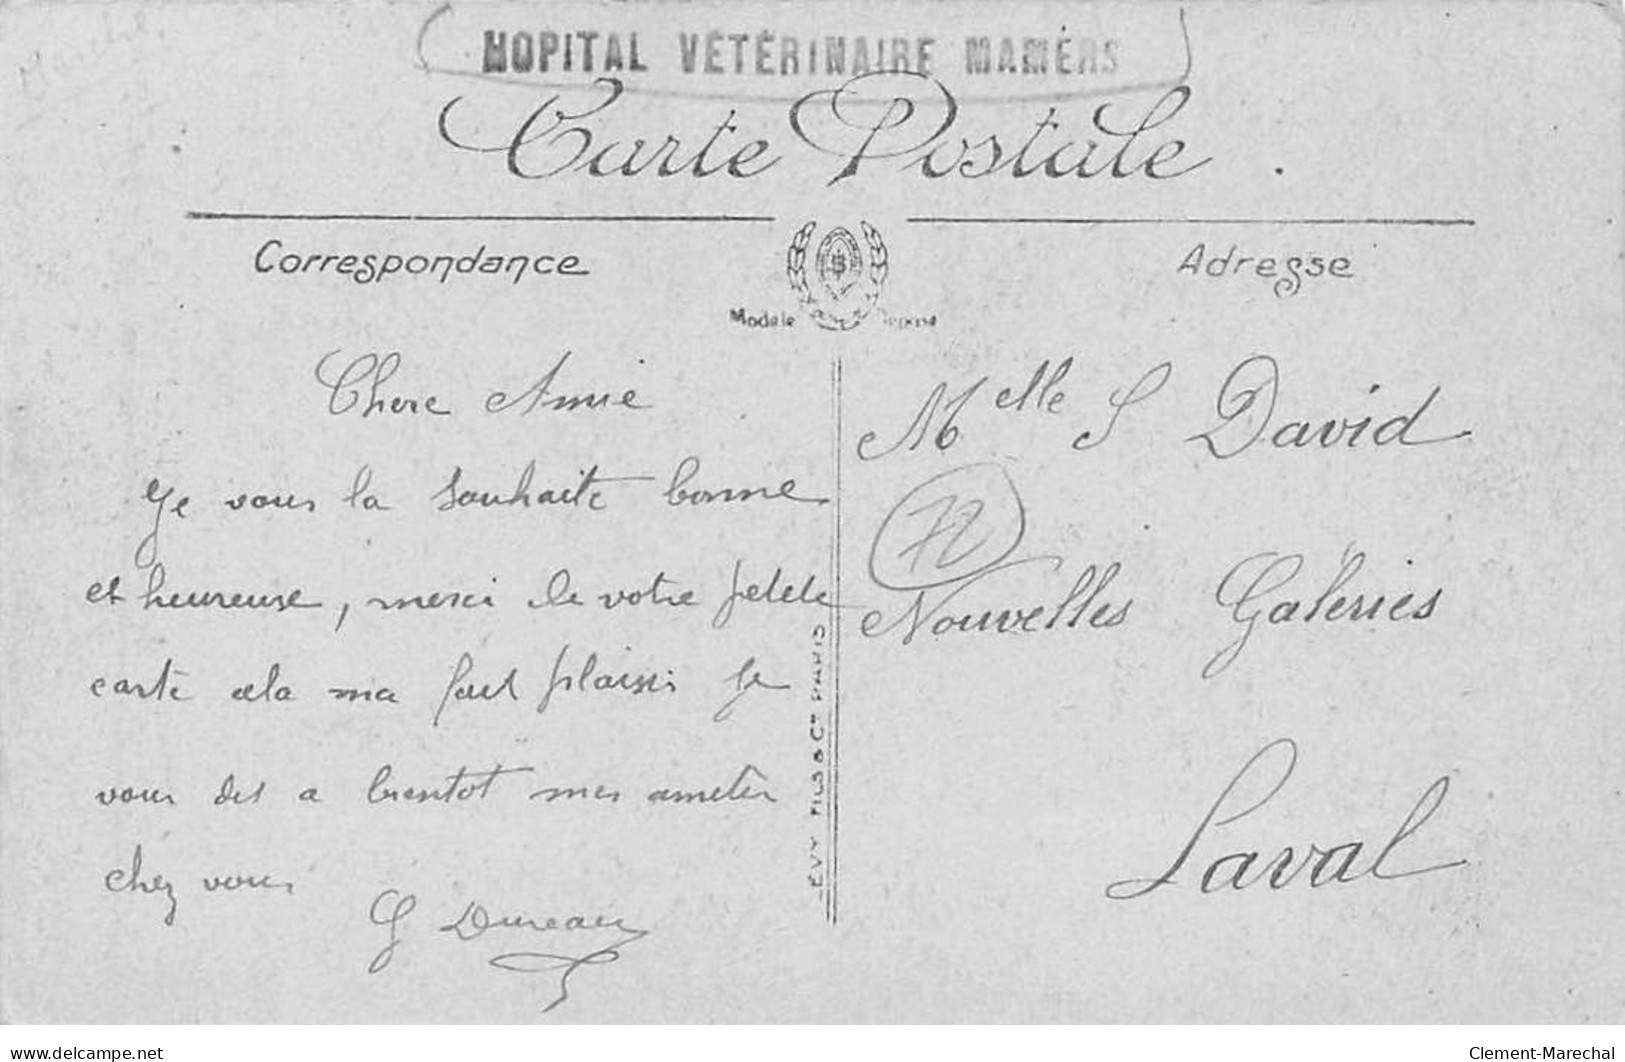 Marché
HOPITAL VÉTÉRINAIRE MAMERS
Carte Postale
Correspondance
Adresse
Modèle
Chere Amie
Je vous la souhaite bonne
et heureuse, merci de votre petite
carte cela ma fait plaisir je
vous dis a bientot mes ameties
chez vous
G Dureau
LEVY FILS & Cie PARIS
Melle S David
72
Nouvelles Galeries
Laval
delcampe.net
Clement-Marechal